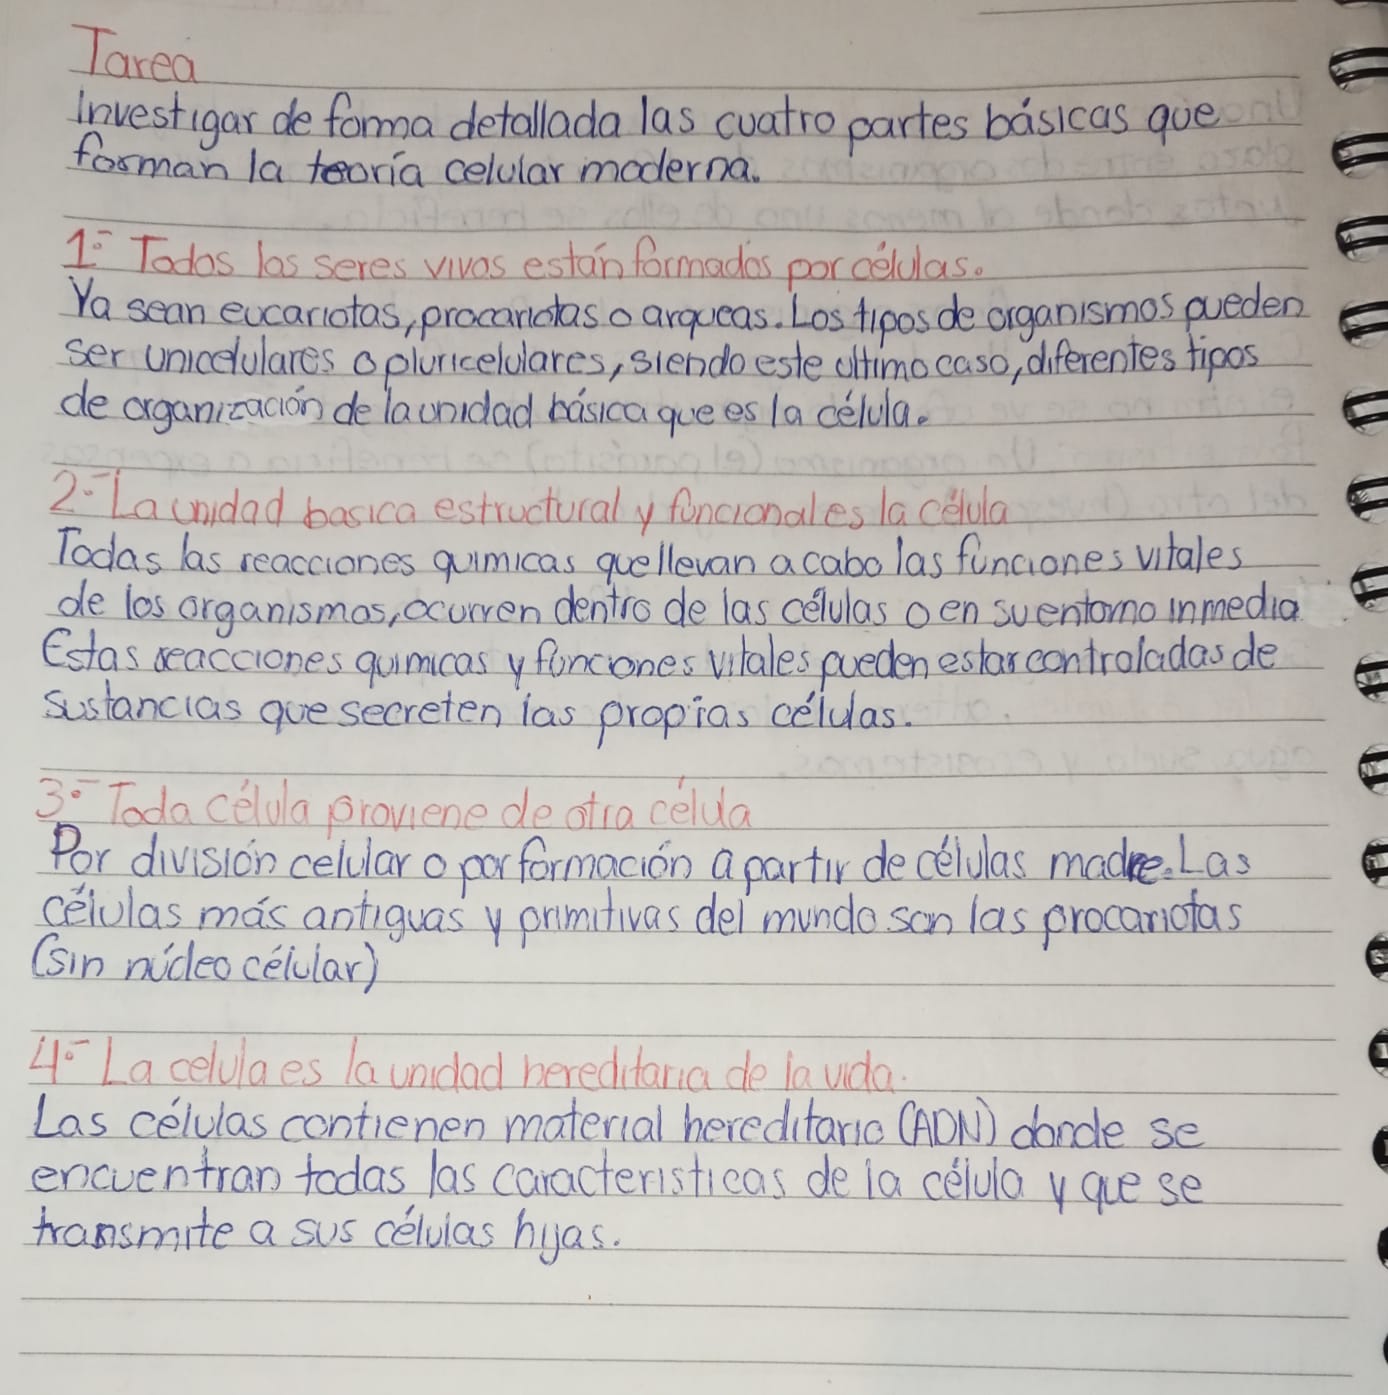 Tarea
Investigar de forma detallada las cuatro partes básicas que
forman la teoría celular moderna.
1.- Todos los seres vivos están formados por células.
Ya sean eucariotas, procariotas o arqueas. Los tipos de organismos pueden
ser unicelulares o pluricelulares, siendo este ultimo caso, diferentes tipos
de organización de la unidad básica que es la célula.
2.- La unidad basica estructural y funcional es la célula
Todas las reacciones quimicas que llevan a cabo las funciones vitales
de los organismos, ocurren dentro de las células o en su entorno inmedia
Estas reacciones quimicas y funciones vitales pueden estar controladas de
sustancias que secreten las propias células.
3.- Toda célula proviene de otra célula
Por división celular o por formación a partir de células madre. Las
células más antiguas y primitivas del mundo son las procariotas
(sin núcleo célular)
4.- La celula es la unidad hereditaria de la vida.
Las células contienen material hereditario (ADN) donde se
encuentran todas las caracteristicas de la célula y que se
transmite a sus células hijas.